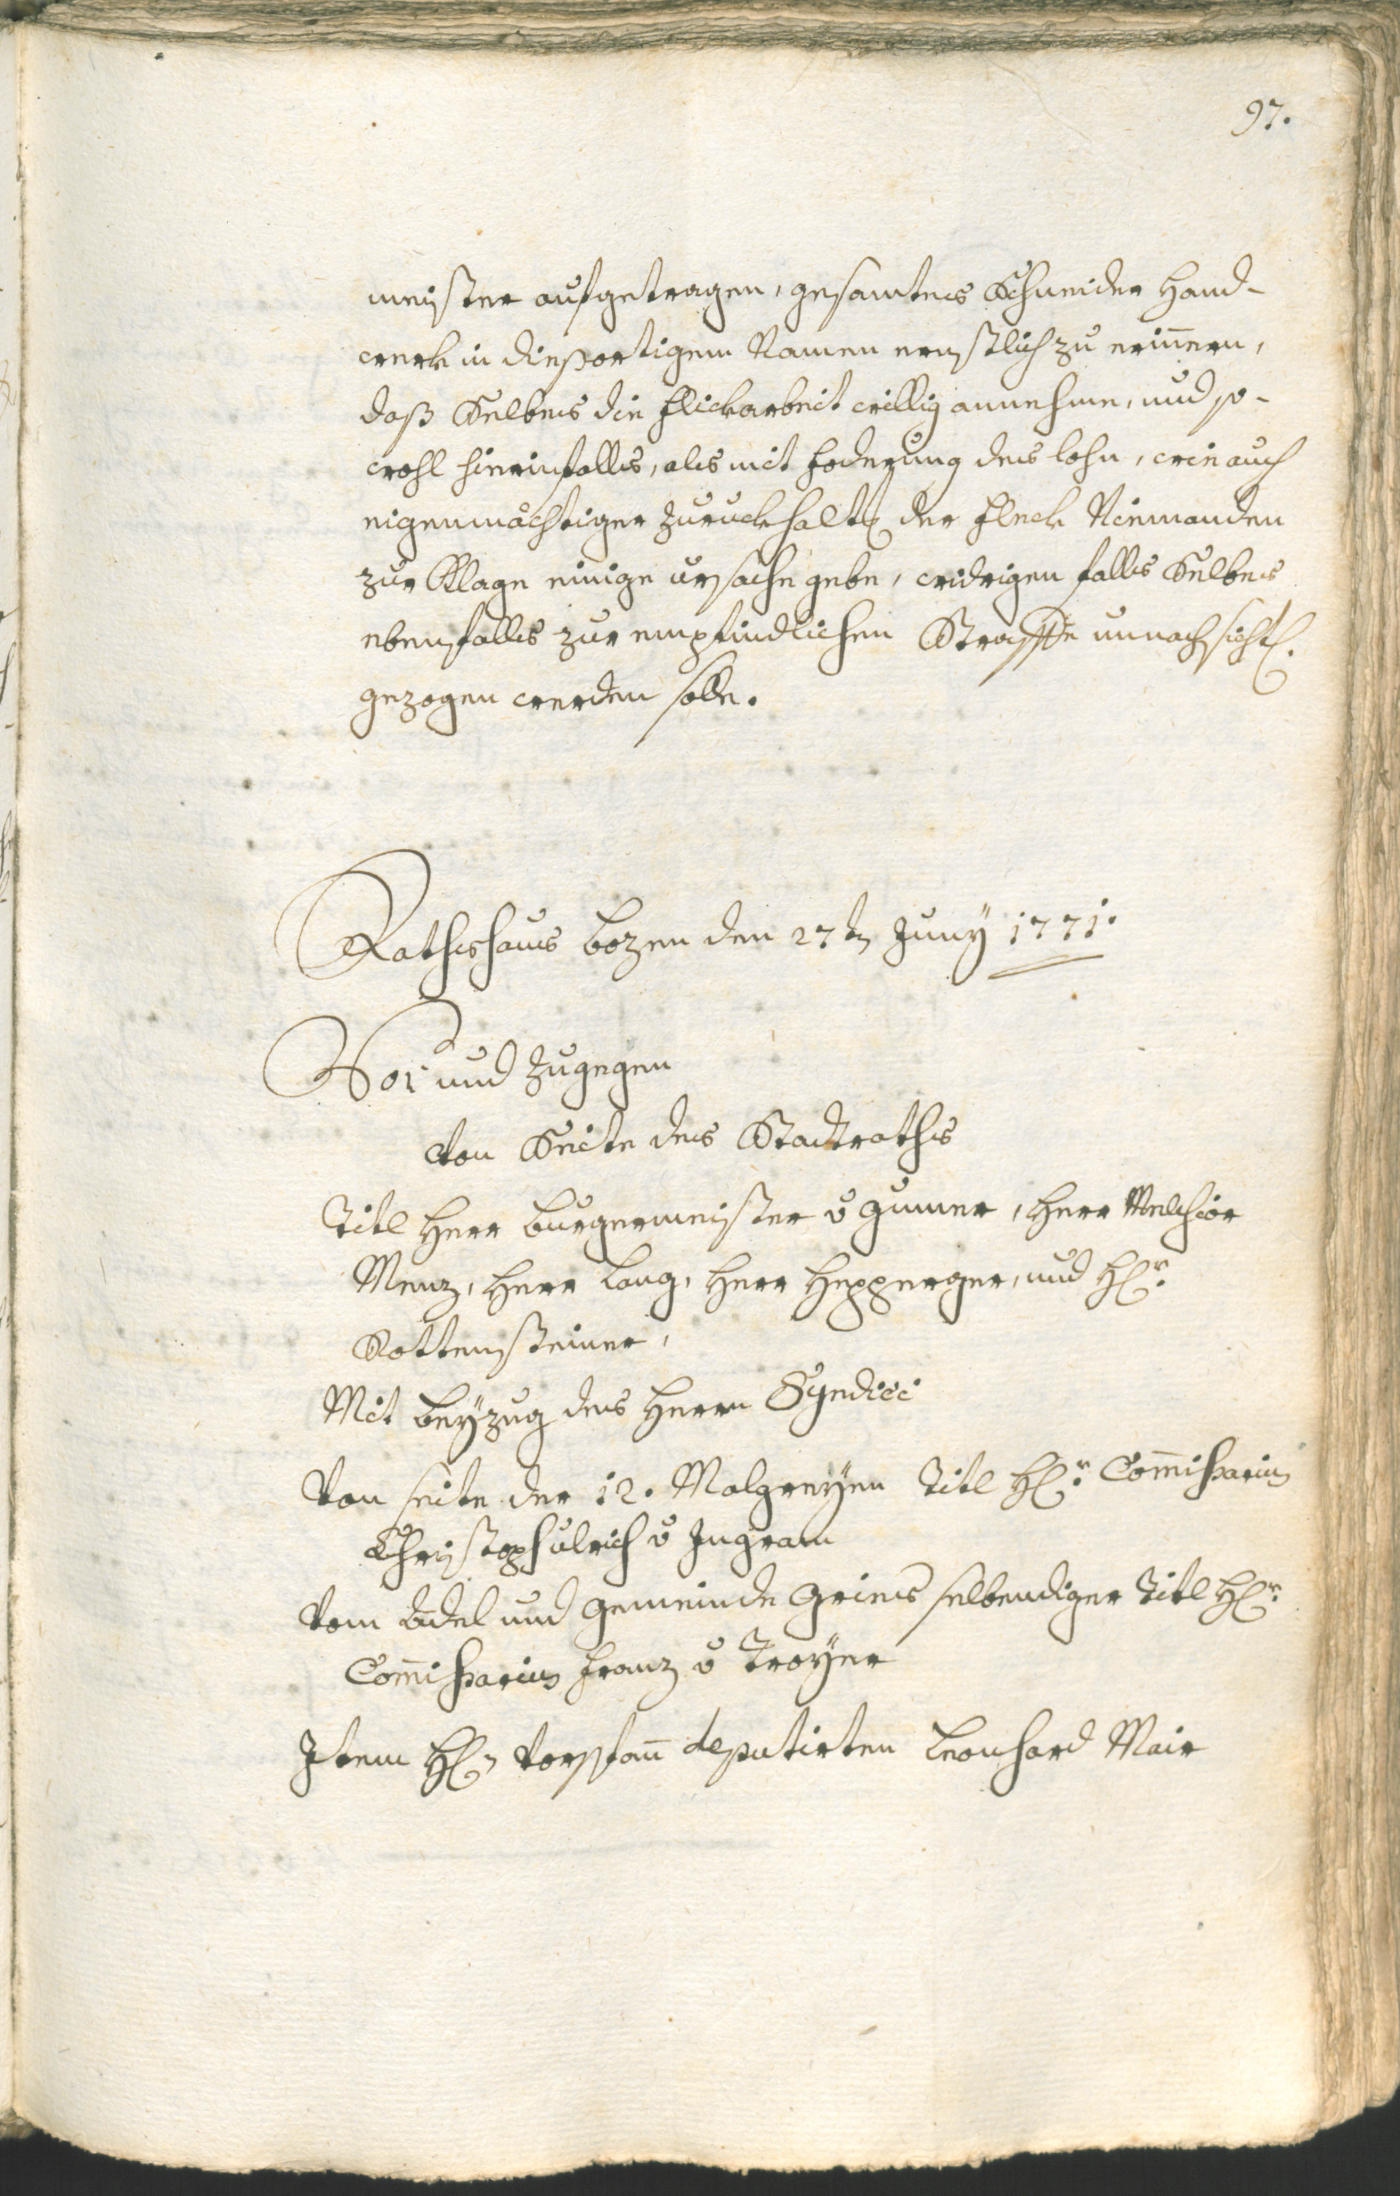 97.
meister aufgetragen, gesamtes Schneider Hand-
werk in diesortigem Namen ernstlich zu eriñern,
daß Selbes die Flickarbeit willig annehme, und so-
wohl hierinfalls, als mit Foderung des lohn, wie auch
eigenmächtiger Zuruckhaltg der Fleck Niemanden
zur Klage einige ursache gebe, widrigen falls Selbes
ebenfalls zur empfindlichen Straffe unnachsichtl.
gezogen werden solle.
Rathshaus Bozen den 27tn Juny 1771.
Vor und Zugegen
Von Seite des Stadtraths
Titl Herr Burgermeister v Gumer, Herr Melchior
Menz, Herr Lang, Herr Hepperger, und Hr.
Rottensteiner,
Mit Beyzug des Herrn Syndici
Von seite der 12. Malgreyen Titl Hr. Com̃issarius
Christoph ulrich v Ingram
Vom Adel und Gemeinde Gries selbendiger Titl Hr.
Com̃issarius Franz v Troyer
Item Hn Vorstañ deputirten Leonhard Mair